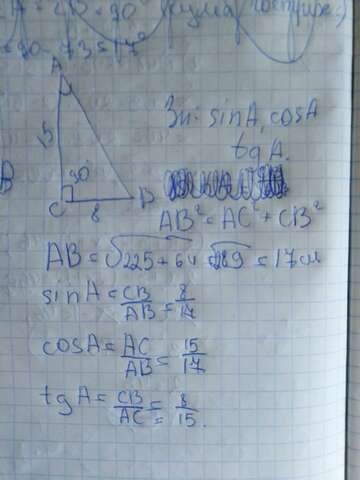 90-73=17°
A
90°
C 8 B
Зн: sinA, cosA
tgA.
AB²=AC²+CB²
AB=√225+64 = √289 = 17см
sinA = CB/AB = 8/17
cosA = AC/AB = 15/17
tgA = CB/AC = 8/15.